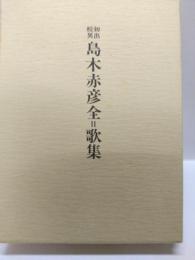 初出
校異
島木赤彦全=歌集